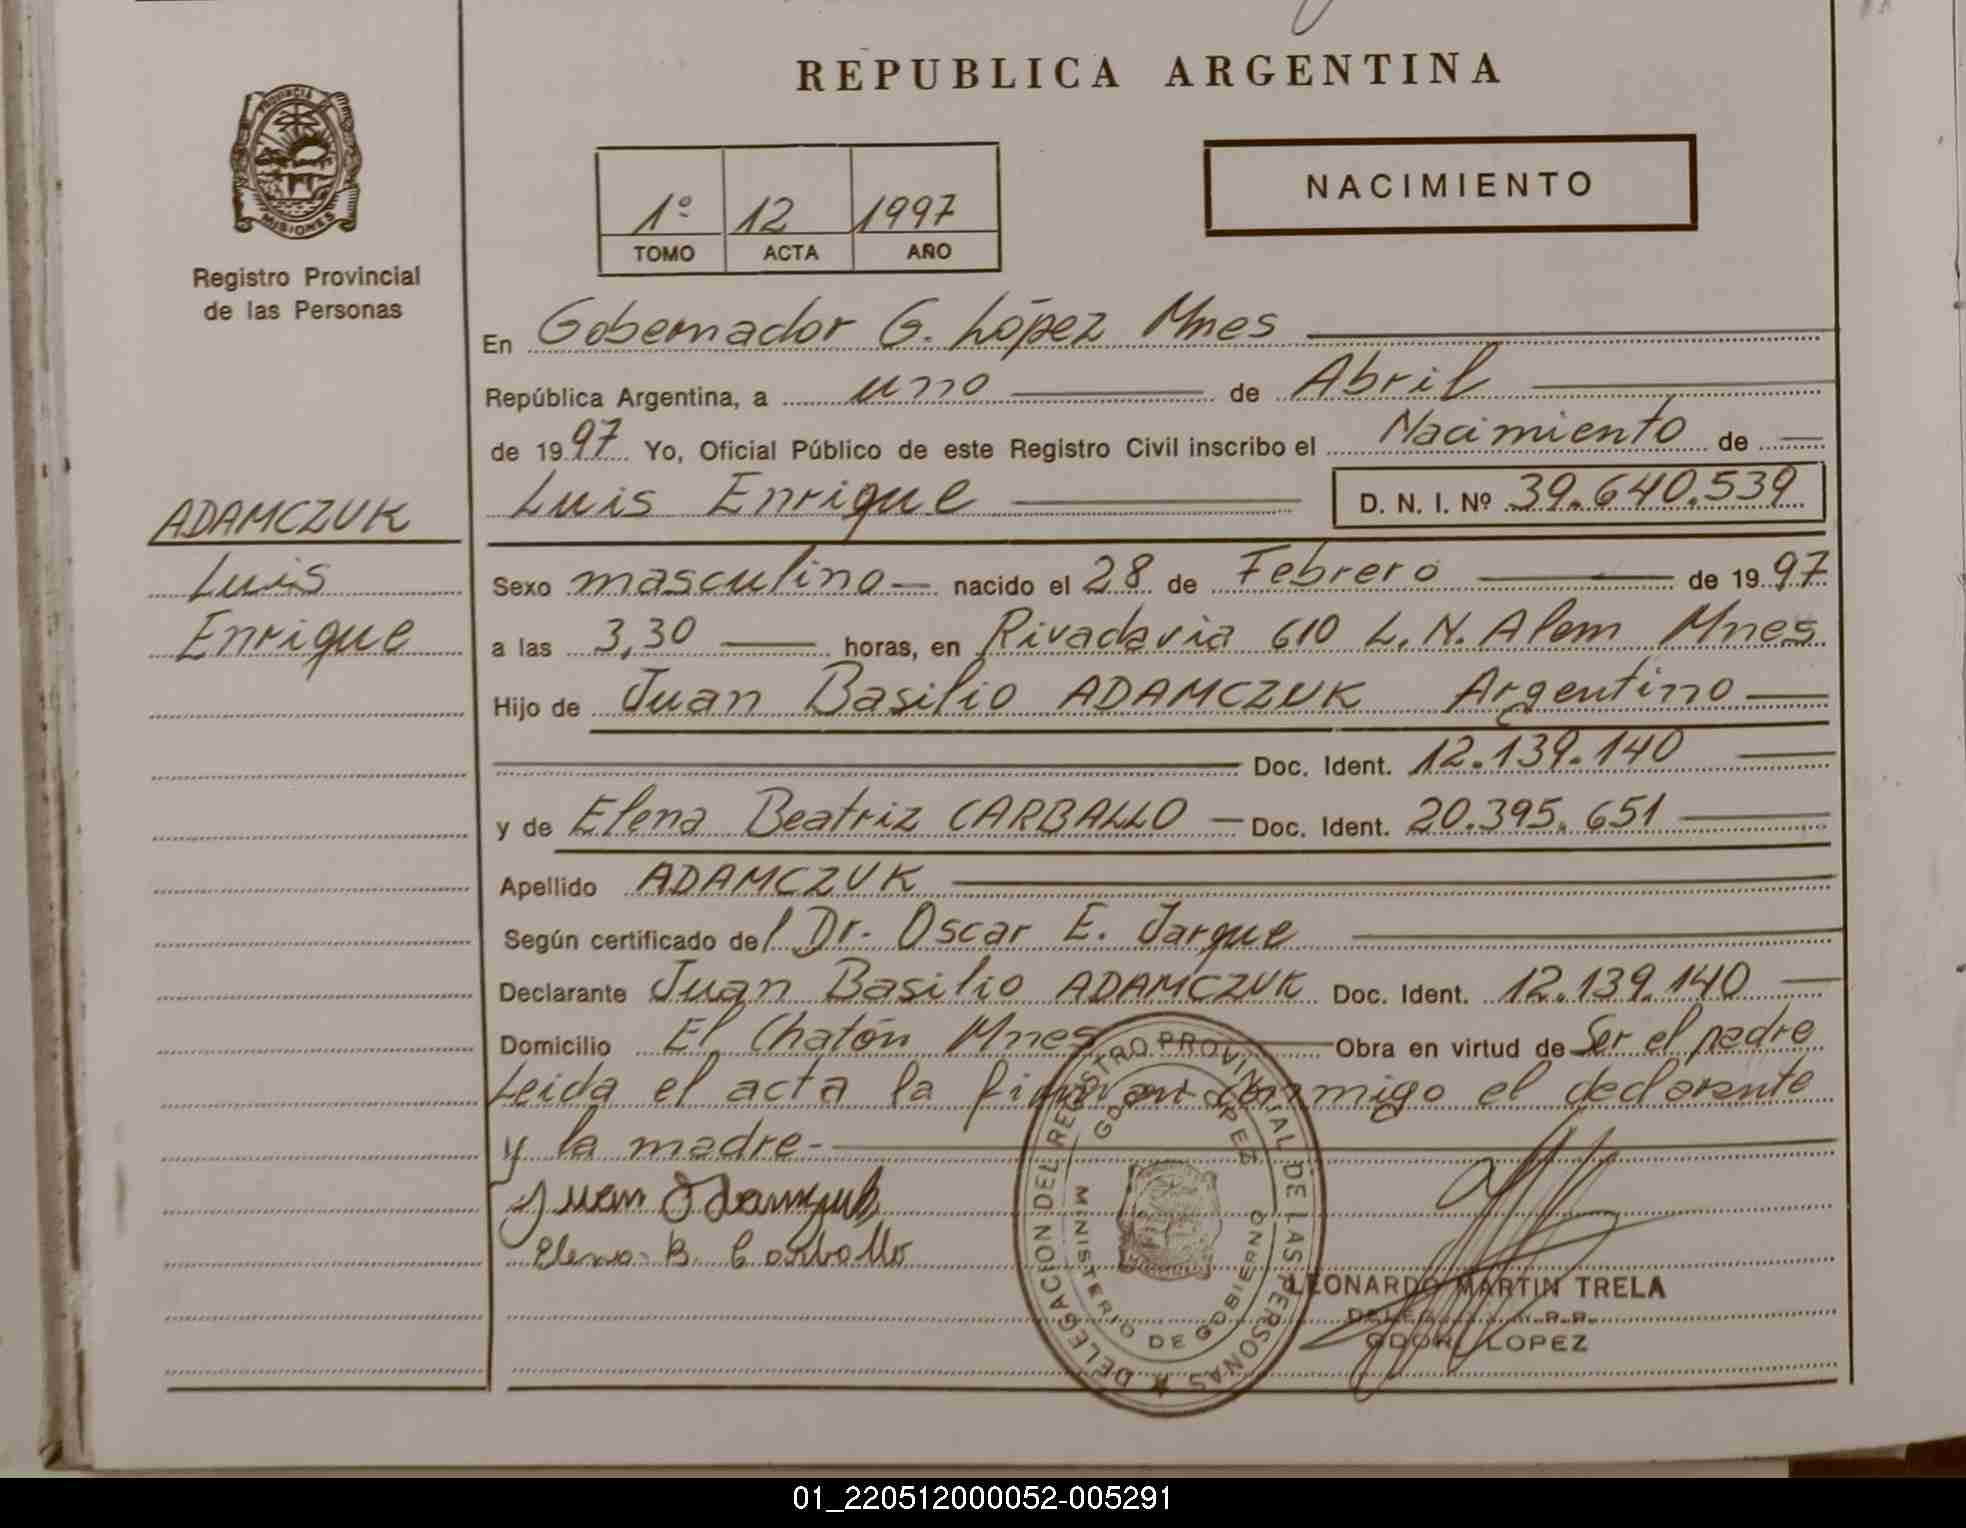 REPUBLICA ARGENTINA
PROVINCIA DE
MISIONES
Registro Provincial
de las Personas
1º 12 1997
TOMO ACTA AÑO
NACIMIENTO
En Gobernador G. López Mnes
República Argentina, a uno de Abril
de 1997 Yo, Oficial Público de este Registro Civil inscribo el Nacimiento de
Luis Enrique D. N. I. Nº 39.640.539
ADAMCZUK
Luis
Enrique
Sexo masculino nacido el 28 de Febrero de 1997
a las 3,30 horas, en Rivadavia 610 L. N. Alem Mnes
Hijo de Juan Basilio ADAMCZUK Argentino
Doc. Ident. 12.139.140
y de Elena Beatriz CARBALLO Doc. Ident. 20.395.651
Apellido ADAMCZUK
Según certificado del Dr. Oscar E. Jarque
Declarante Juan Basilio ADAMCZUK Doc. Ident. 12.139.140
Domicilio El Chatón Mnes Obra en virtud de Ser el padre
Leida el acta la firman conmigo el declarante
y la madre-
Juan Adamczuk
Elena B. Carballo
DELEGACION DEL REGISTRO PROVINCIAL DE LAS PERSONAS
LOPEZ
MINISTERIO DE GOBIERNO
LEONARDO MARTIN TRELA
LOPEZ
01_220512000052-005291